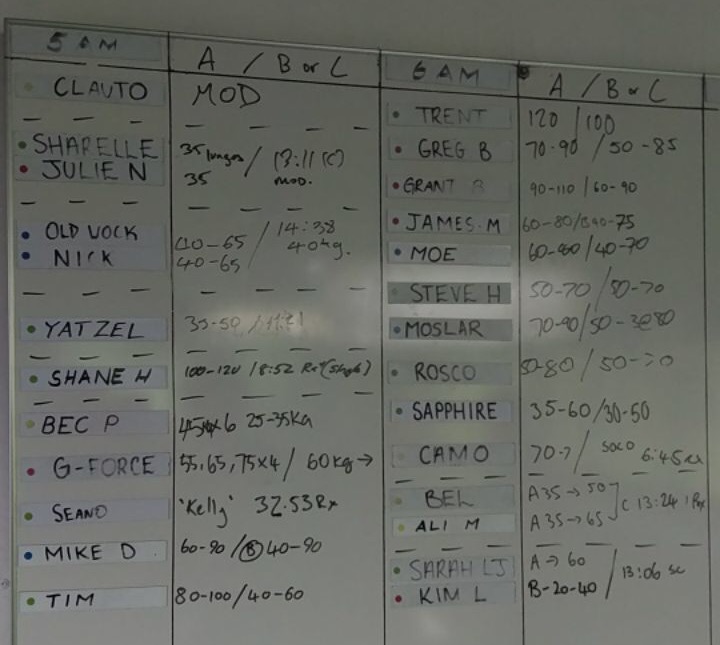 5 AM A / B or C
CLAUTO MOD
SHARELLE 35 lunges / 13:11 (C)
JULIE N 35 mod.
OLD VOCK 40-65 / 14:38
NICK 40-65 40kg.
YATZEL 35-50 /
SHANE H 100-120 / 8:52 Rx
BEC P 25-35kg
G-FORCE 55, 65, 75x4 / 60kg →
SEANO 'Kelly' 32.53 Rx
MIKE D 60-90 / (B) 40-90
TIM 80-100 / 40-60
6 AM A / B or C
TRENT 120 / 100
GREG B 70-90 / 50-85
GRANT B 90-110 / 60-90
JAMES.M 60-80/
MOE /40-70
STEVE H 50-70 / 50-70
MOSLAR 70-90/50-
ROSCO 50-80 / 50-
SAPPHIRE 35-60/30-50
CAMO
BEL A 35 → 50
C 13:24
ALI M A 35 → 65
SARAH LJ A → 60
/ 13:06 sc
KIM L B-20-40